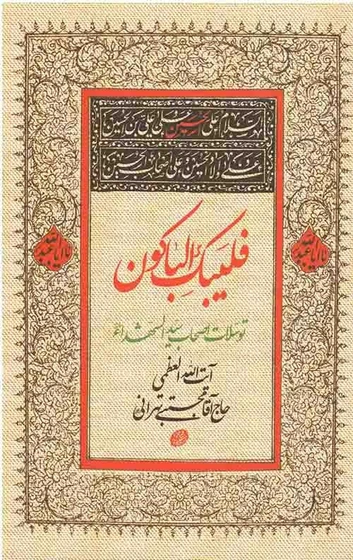 السلام علی الحسین و علی علی بن الحسین
و علی اولاد الحسین و علی اصحاب الحسین
یا اباعبدالله
یا اباعبدالله
فلیبک الباکون
توسلات اصحاب سیدالشهداء
آیت الله العظمی
حاج آقا مجتبی تهرانی